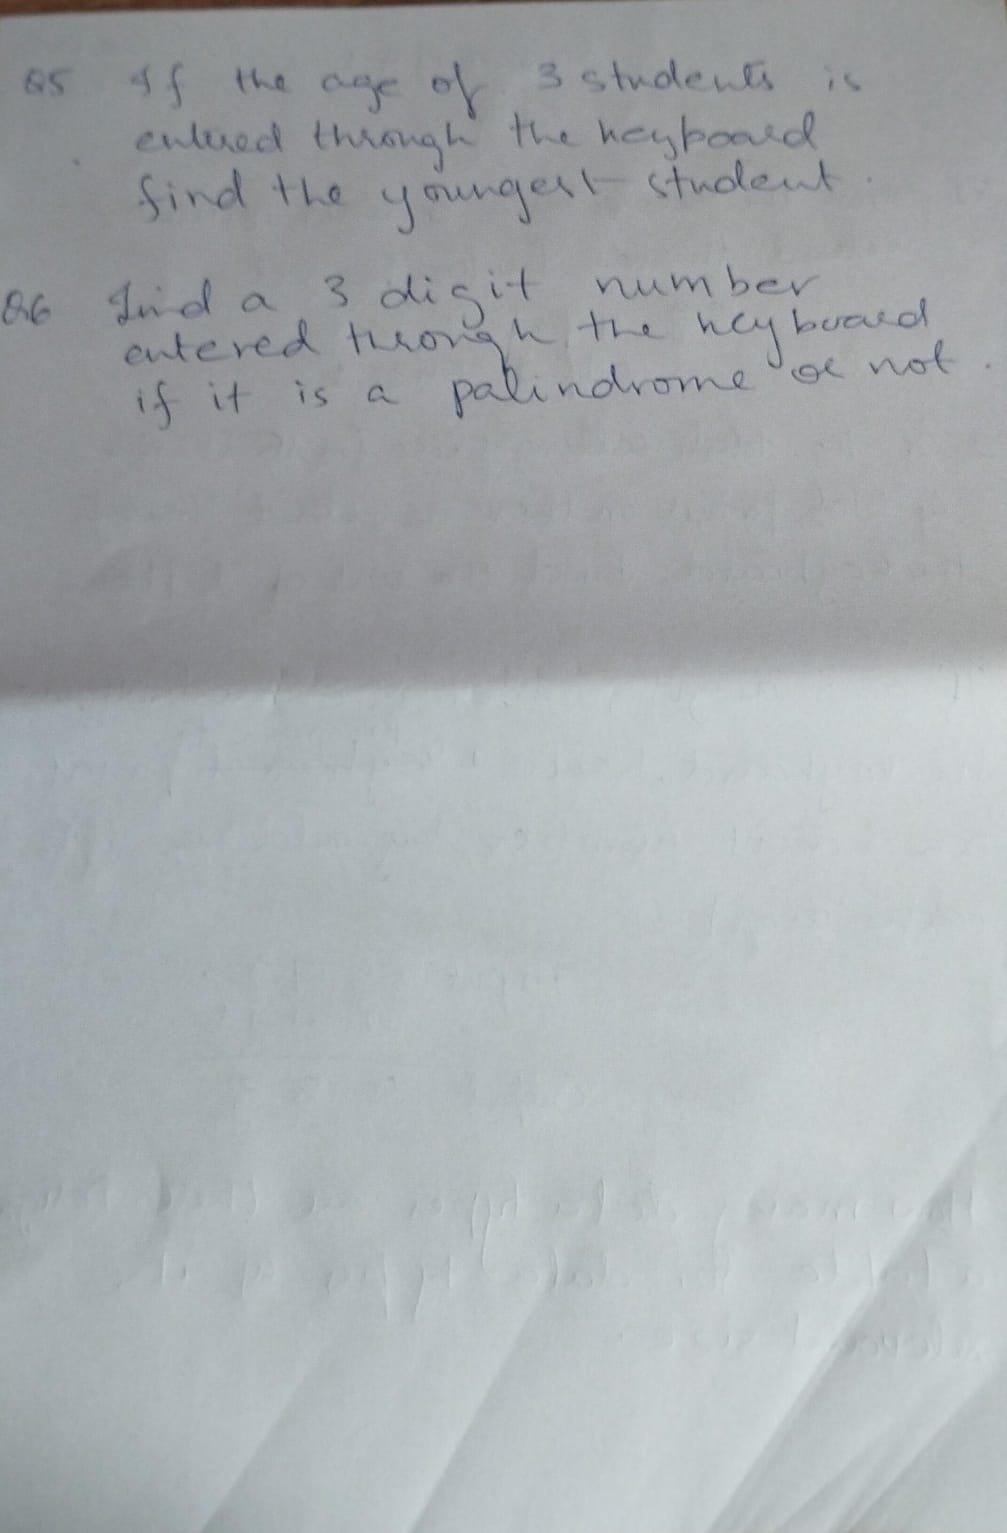 Q5 If the age of 3 students is
entered through the keyboard
find the youngest student.
Q6 Find a 3 digit number
entered through the keyboard
if it is a palindrome or not.